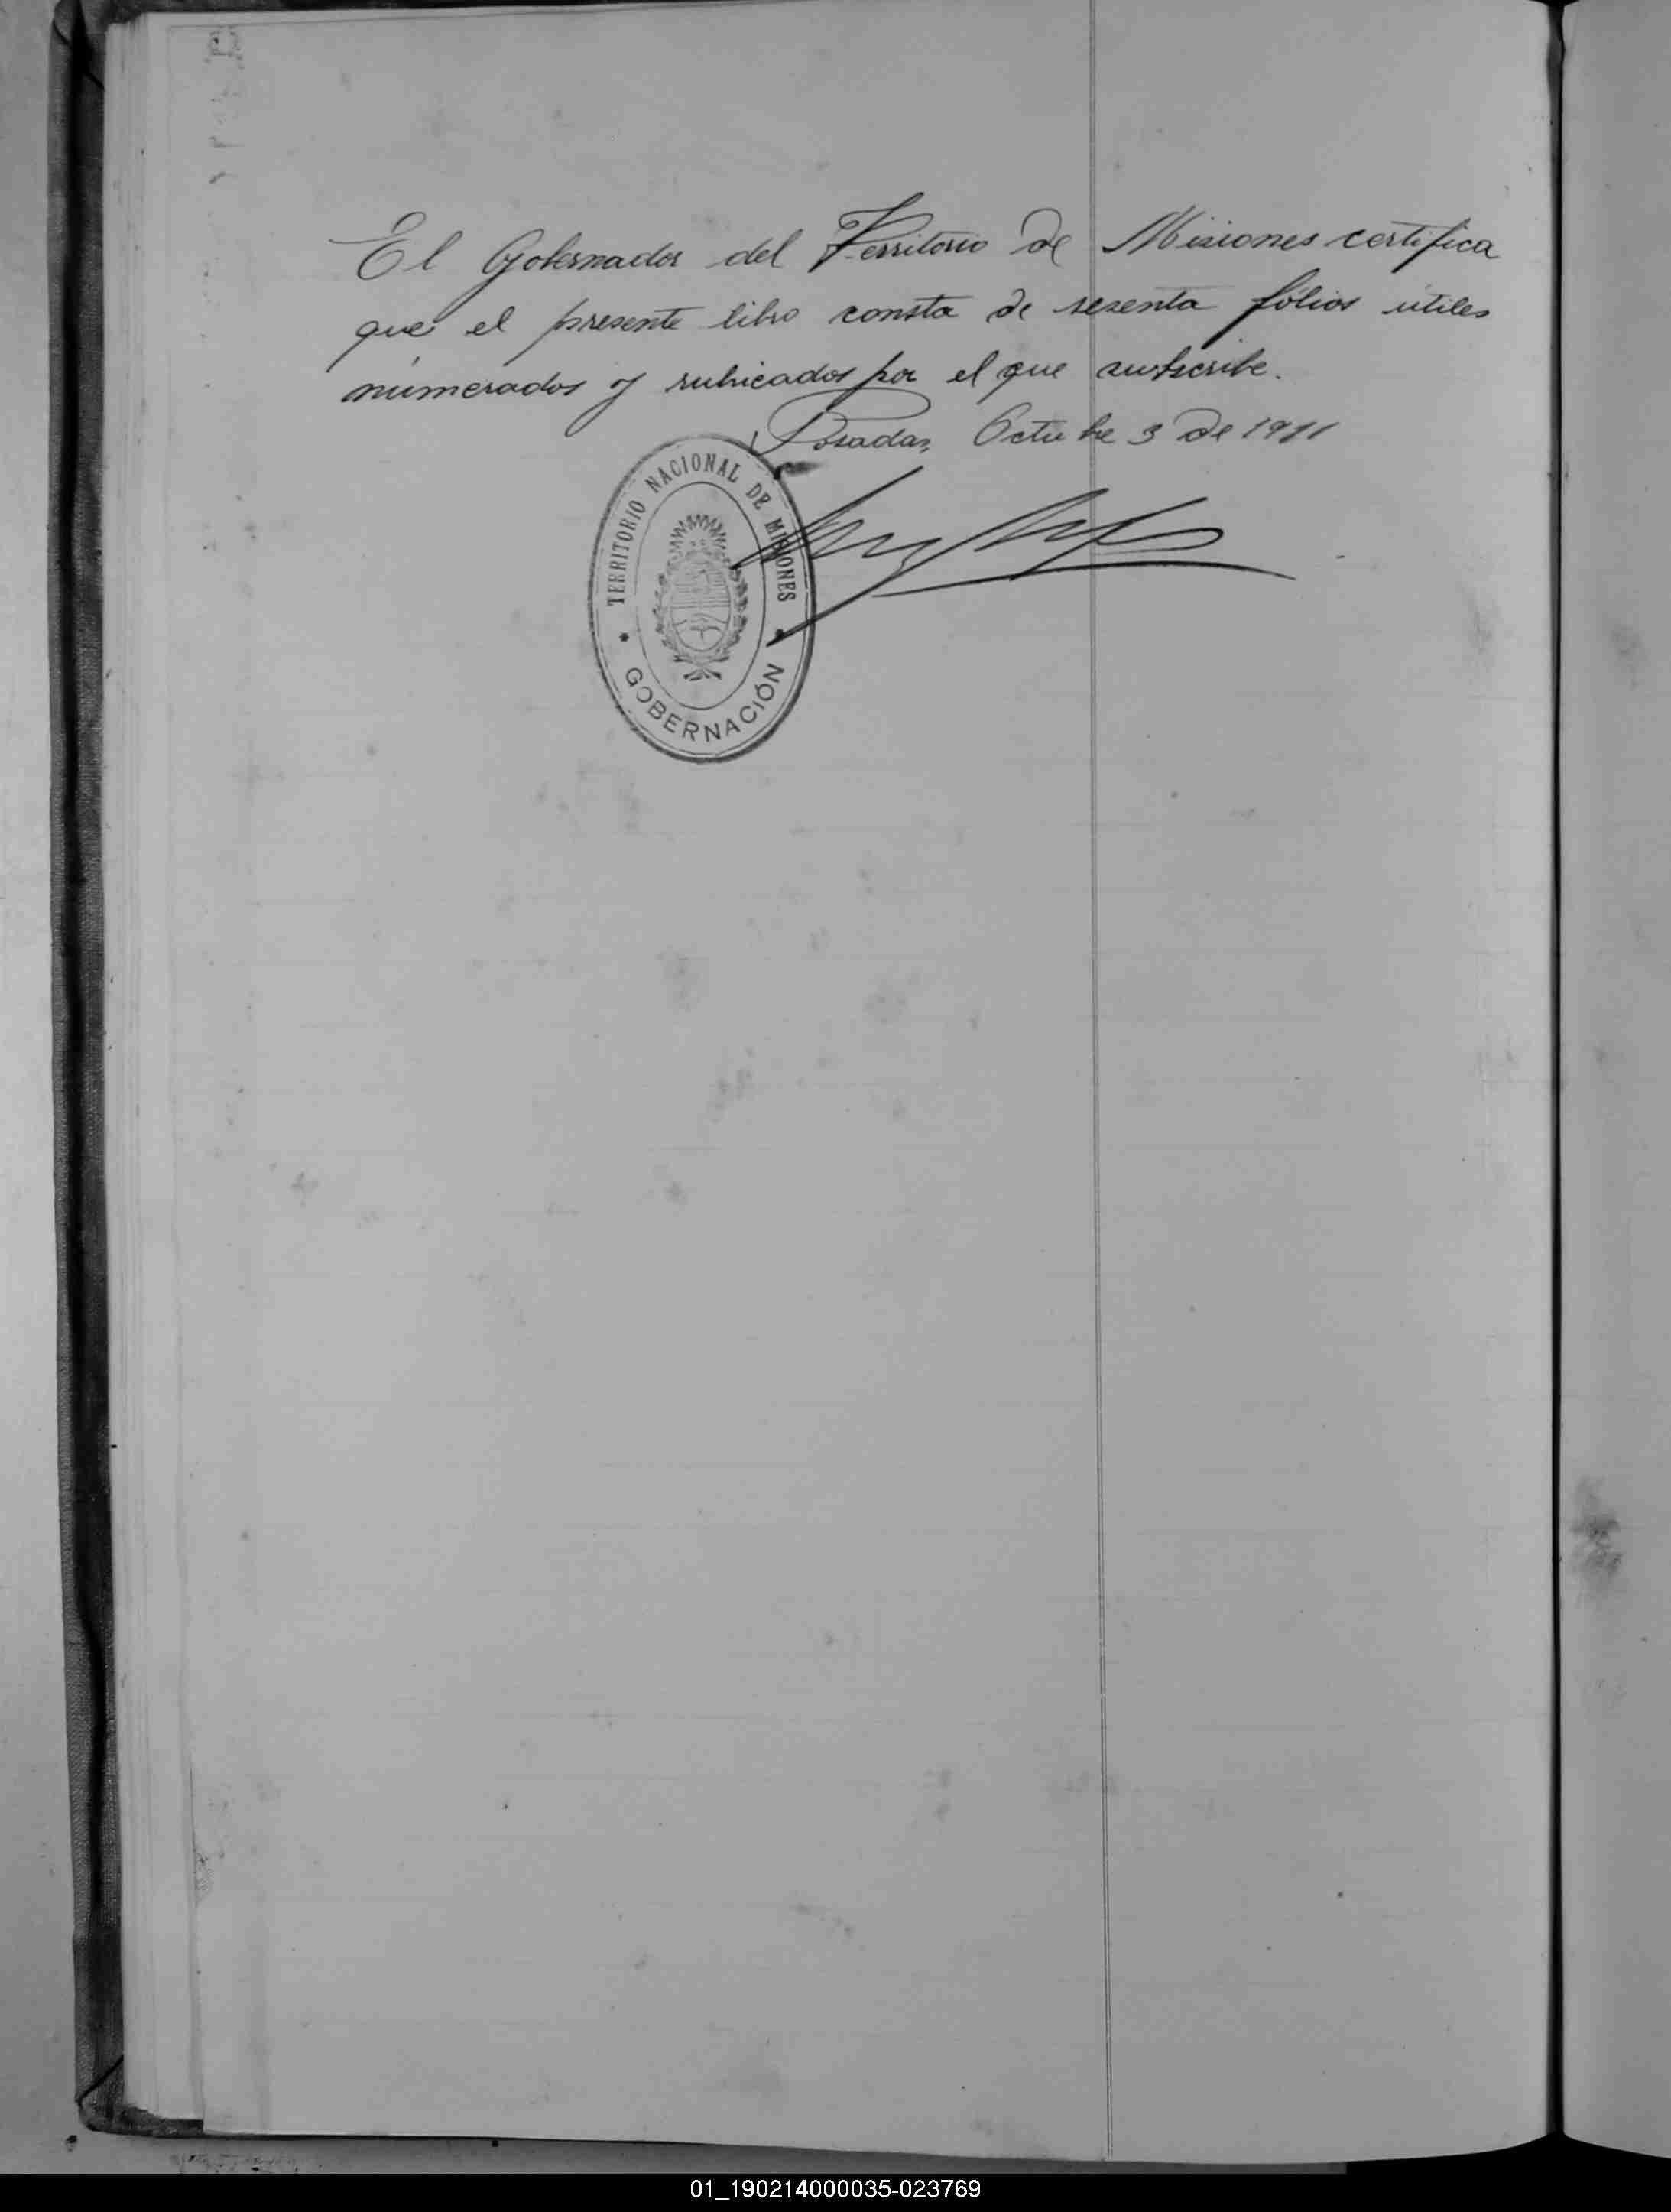 El Gobernador del Territorio de Misiones certifica
que el presente libro consta de sesenta fólios útiles
númerados y rubricados por el que subscribe.
Posadas, Octubre 3 de 1911
TERRITORIO NACIONAL DE MISIONES
GOBERNACIÓN
01_190214000035-023769